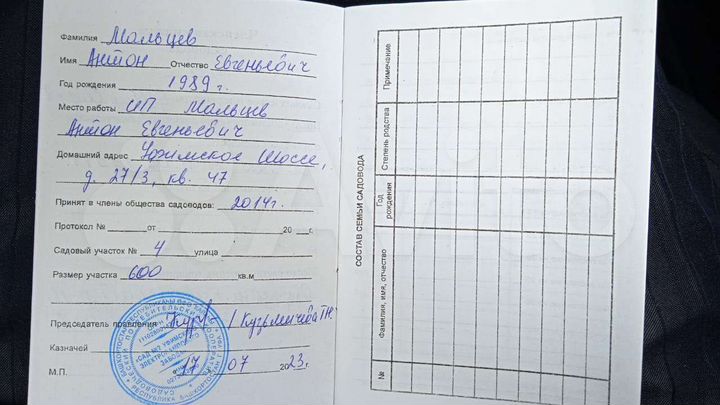 Фамилия Мальцев
Имя Антон Отчество Евгеньевич
Год рождения 1989 г.
Место работы ИП Мальцев
Антон Евгеньевич
Домашний адрес Уфимское Шоссе,
д. 27/3, кв. 47
Принят в члены общества садоводов: 2014г.
Протокол № от 20 г.
Садовый участок № 4 улица
Размер участка 600 кв.м
Председатель правления / Кузьмичёва
Казначей
М.П. 17 07 2023г.
СОСТАВ СЕМЬИ САДОВОДА
№
Фамилия, имя, отчество
Год
рождения
Степень родства
Примечание